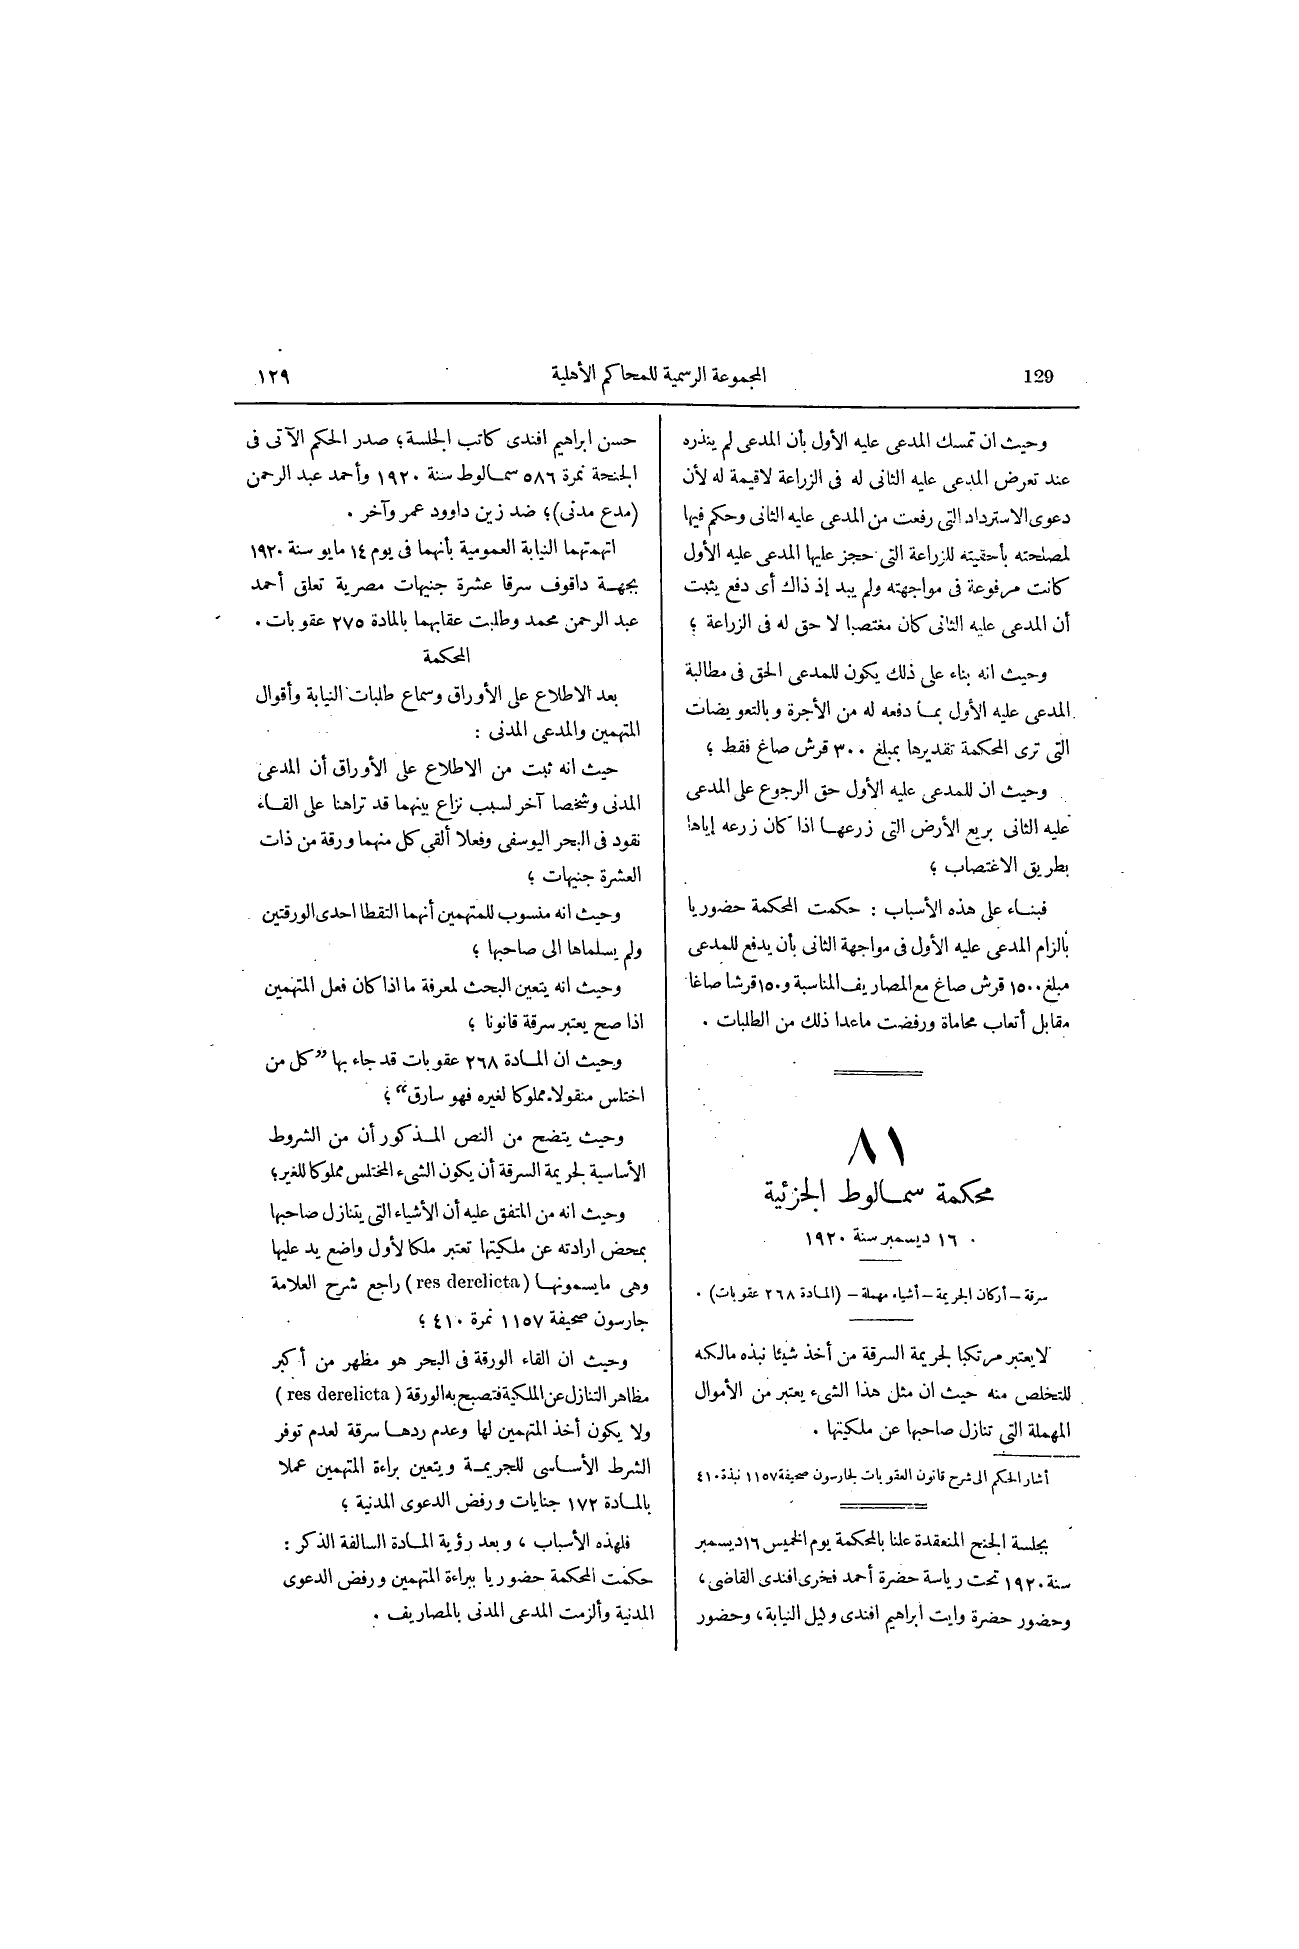 129
المجموعة الرسمية للمحاكم الأهلية
١٢٩
وحيث ان تمسك المدعى عليه الأول بأن المدعى لم ينذره
عند تعرض المدعى عليه الثانى له فى الزراعة لاقيمة له لأن
دعوى الاسترداد التى رفعت من المدعى عليه الثانى وحكم فيها
لمصلحته بأحقيته للزراعة التى حجز عليها المدعى عليه الأول
كانت مرفوعة فى مواجهته ولم يبد إذ ذاك أى دفع يثبت
أن المدعى عليه الثانى كان مغتصبا لا حق له فى الزراعة ؛
وحيث انه بناء على ذلك يكون للمدعى الحق فى مطالبة
المدعى عليه الأول بما دفعه له من الأجرة وبالتعويضات
التى ترى المحكمة تقديرها بمبلغ ٣٠٠ قرش صاغ فقط ؛
وحيث ان للمدعى عليه الأول حق الرجوع على المدعى
عليه الثانى بريع الأرض التى زرعها اذا كان زرعه إياها
بطريق الاغتصاب ؛
فبناء على هذه الأسباب : حكمت المحكمة حضوريا
بالزام المدعى عليه الأول فى مواجهة الثانى بأن يدفع للمدعى
مبلغ ١٥٠٠ قرش صاغ مع المصاريف المناسبة و١٥٠ قرشا صاغا
مقابل أتعاب محاماة ورفضت ماعدا ذلك من الطلبات .
٨١
محكمة سمالوط الجزئية
١٦ ديسمبر سنة ١٩٢٠
سرقة – أركان الجريمة – أشياء مهملة – (المادة ٢٦٨ عقوبات) .
لا يعتبر مرتكبا لجريمة السرقة من أخذ شيئا نبذه مالكه
للتخلص منه حيث ان مثل هذا الشىء يعتبر من الأموال
المهملة التى تنازل صاحبها عن ملكيتها .
أشار الحكم الى شرح قانون العقوبات لجارسون صحيفة ١١٥٧ نبذة ٤١٠
بجلسة الجنح المنعقدة علنا بالمحكمة يوم الخميس ١٦ ديسمبر
سنة ١٩٢٠ تحت رياسة حضرة أحمد فخرى افندى القاضى ،
وحضور حضرة وايت ابراهيم افندى وكيل النيابة ، وحضور
حسن ابراهيم افندى كاتب الجلسة ؛ صدر الحكم الآتى فى
الجنحة نمرة ٥٨٦ سمالوط سنة ١٩٢٠ وأحمد عبد الرحمن
(مدع مدنى) ؛ ضد زين داوود عمر وآخر .
اتهمتهما النيابة العمومية بأنهما فى يوم ١٤ مايو سنة ١٩٢٠
بجهة داقوف سرقا عشرة جنيهات مصرية تعلق أحمد
عبد الرحمن محمد وطلبت عقابهما بالمادة ٢٧٥ عقوبات .
المحكمة
بعد الاطلاع على الأوراق وسماع طلبات النيابة وأقوال
المتهمين والمدعى المدنى :
حيث انه ثبت من الاطلاع على الأوراق أن المدعى
المدنى وشخصا آخر لسبب نزاع بينهما قد تراهنا على القاء
نقود فى البحر اليوسفى وفعلا ألقى كل منهما ورقة من ذات
العشرة جنيهات ؛
وحيث انه منسوب للمتهمين أنهما التقطا احدى الورقتين
ولم يسلماها الى صاحبها ؛
وحيث انه يتعين البحث لمعرفة ما اذا كان فعل المتهمين
اذا صح يعتبر سرقة قانونا ؛
وحيث ان المادة ٢٦٨ عقوبات قد جاء بها ”كل من
اختلس منقولا مملوكا لغيره فهو سارق“ ؛
وحيث يتضح من النص المذكور أن من الشروط
الأساسية لجريمة السرقة أن يكون الشىء المختلس مملوكا للغير ؛
وحيث انه من المتفق عليه أن الأشياء التى يتنازل صاحبها
بمحض ارادته عن ملكيتها تعتبر ملكا لأول واضع يد عليها
وهى مايسمونها (res derelicta) راجع شرح العلامة
جارسون صحيفة ١١٥٧ نمرة ٤١٠ ؛
وحيث ان القاء الورقة فى البحر هو مظهر من أكبر
مظاهر التنازل عن الملكية فتصبح به الورقة (res derelicta)
ولا يكون أخذ المتهمين لها وعدم ردها سرقة لعدم توفر
الشرط الأساسى للجريمة ويتعين براءة المتهمين عملا
بالمادة ١٧٢ جنايات ورفض الدعوى المدنية ؛
فلهذه الأسباب ، وبعد رؤية المادة السالفة الذكر :
حكمت المحكمة حضوريا ببراءة المتهمين ورفض الدعوى
المدنية وألزمت المدعى المدنى بالمصاريف .